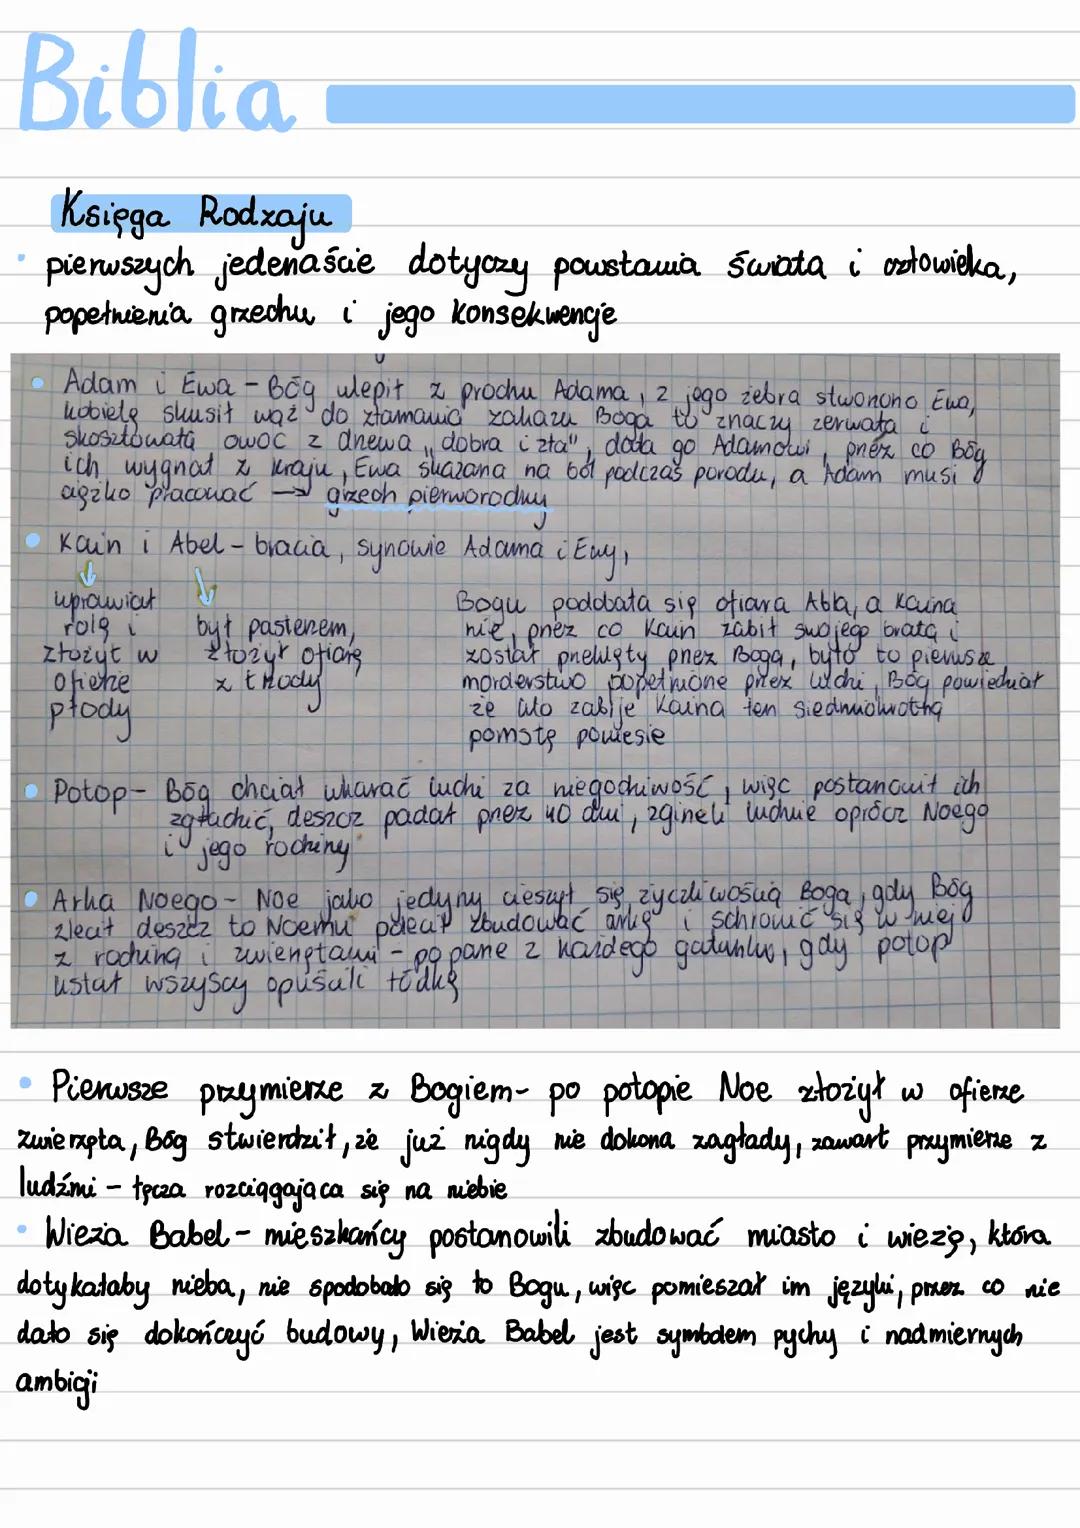 Biblia
Księga Rodzaju
• pierwszych jedenaście dotyczy powstawia świata i człowieka,
popełnienia grzechu i jego konsekwencje
• Adam i Ewa - Bóg ulepił z prochu Adama, z jego żebra stworzono Ewa,
kobietę skusił wąż do złamania zakazu Boga to znaczy zerwała i
skosztowała owoc z drzewa "dobra i zła", dała go Adamowi, przez co Bóg
ich wygnał z kraju, Ewa skazana na ból podczas porodu, a Adam musi
ciężko pracować → grzech pierworodny
• Kain i Abel - bracia, synowie Adama i Ewy,
uprawiał
rolę i
złożył w
ofierze
płody
był pasterzem,
złożył ofiarę
z trzody
Bogu podobała się ofiara Abla, a Kaina
nie, przez co Kain zabił swojego brata i
został przeklęty przez Boga, było to pierwsze
morderstwo popełnione przez ludzi, Bóg powiedział
że kto zabije Kaina ten siedmiokrotną
pomstę poniesie
• Potop - Bóg chciał ukarać ludzi za niegodziwość, więc postanowił ich
zgładzić, deszcz padał przez 40 dni, zgineli ludzie oprócz Noego
i jego rodziny
• Arka Noego - Noe jako jedyny cieszył się życzliwością Boga, gdy Bóg
zlecił deszcz to Noemu polecił zbudować arkę i schronić się w niej
z rodziną i zwierzętami - po parze z każdego gatunku, gdy potop
ustał wszyscy opuścili łódkę
• Pierwsze przymierze z Bogiem- po potopie Noe złożył w ofierze
zwierzęta, Bóg stwierdził, że już nigdy nie dokona zagłady, zawarł przymierze z
ludźmi – tęcza rozciągająca się na niebie
• Wieża Babel - mieszkańcy postanowili zbudować miasto i wieżę, która
dotykałaby nieba, nie spodobało się to Bogu, więc pomieszał im języki, przez co nie
dało się dokończyć budowy, Wieża Babel jest symbolem pychy i nadmiernych
ambicji